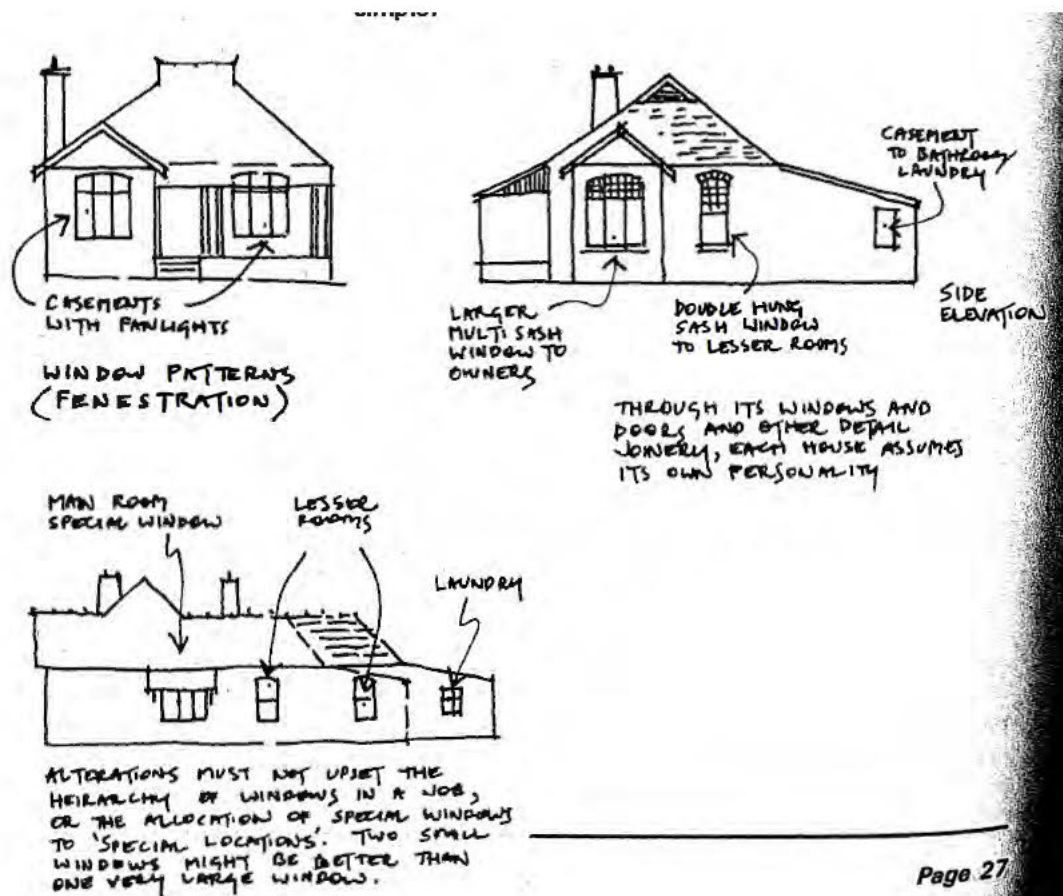 simple.
CASEMENTS
WITH FANLIGHTS
WINDOW PATTERNS
(FENESTRATION)
CASEMENT
TO BATHROOM
LAUNDRY
LARGER
MULTI SASH
WINDOW TO
OWNERS
DOUBLE HUNG
SASH WINDOW
TO LESSER ROOMS
SIDE
ELEVATION
THROUGH ITS WINDOWS AND
DOORS AND OTHER DETAIL
JOINERY, EACH HOUSE ASSUMES
ITS OWN PERSONALITY
MAIN ROOM
SPECIAL WINDOW
LESSER
ROOMS
LAUNDRY
ALTERATIONS MUST NOT UPSET THE
HEIRARCHY OF WINDOWS IN A JOB,
OR THE ALLOCATION OF SPECIAL WINDOWS
TO 'SPECIAL LOCATIONS'. TWO SMALL
WINDOWS MIGHT BE BETTER THAN
ONE VERY LARGE WINDOW.
Page 27